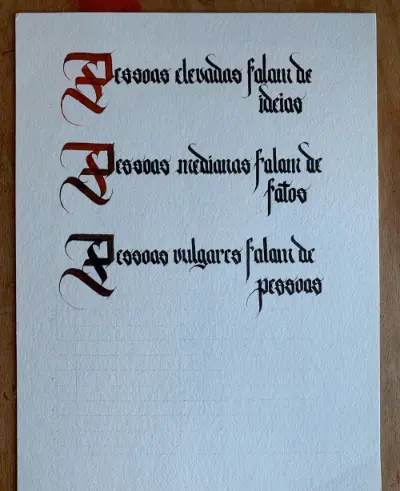 Pessoas elevadas falam de
ideias
Pessoas medianas falam de
fatos
Pessoas vulgares falam de
pessoas